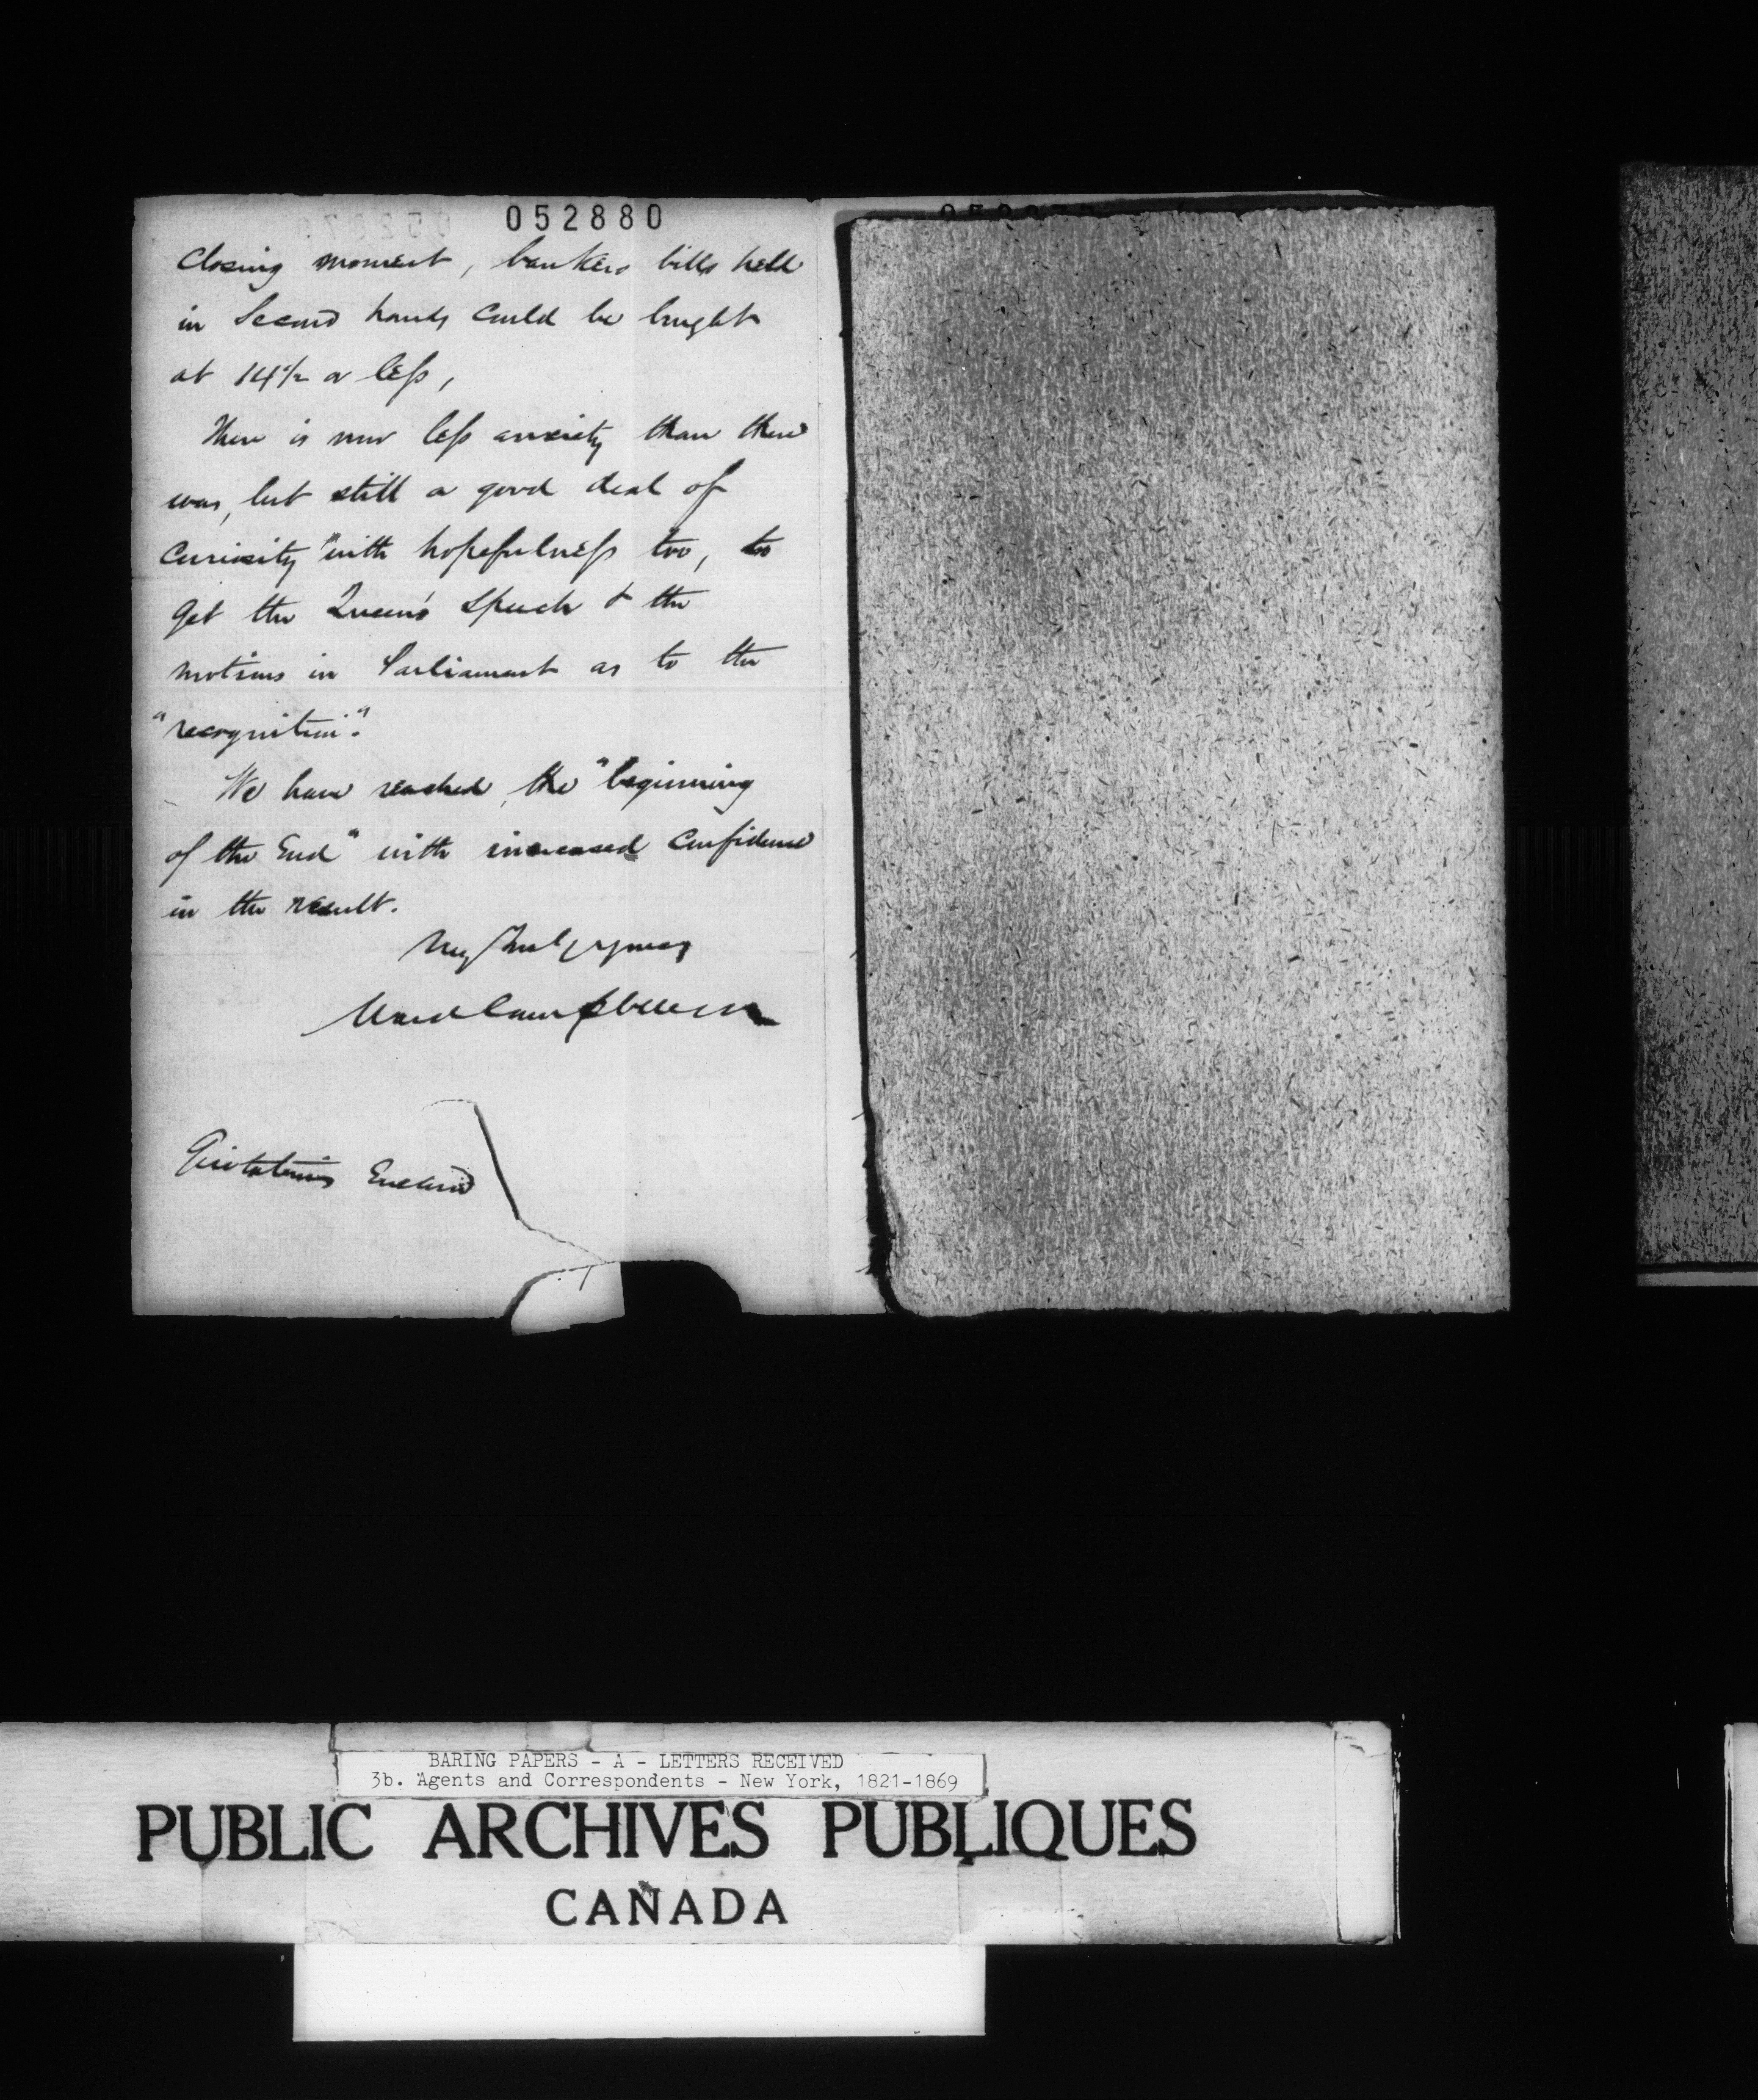 052880
Closing moment, bankers bills held
in Second hands could be bought
at 14½ or less,
There is now less anxiety than there
was, but still a good deal of
Curiosity "with hopefulness too, to
get the Queen's Speech & the
motions in Parliament as to the
"recognition".
We have reached the "beginning
of the End" with increased Confidence
in the result.
Ward Campbell & Co
Quotations Enclosed
BARING PAPERS - A - LETTERS RECEIVED
3b. Agents and Correspondents - New York, 1821-1869
PUBLIC ARCHIVES PUBLIQUES
CANADA